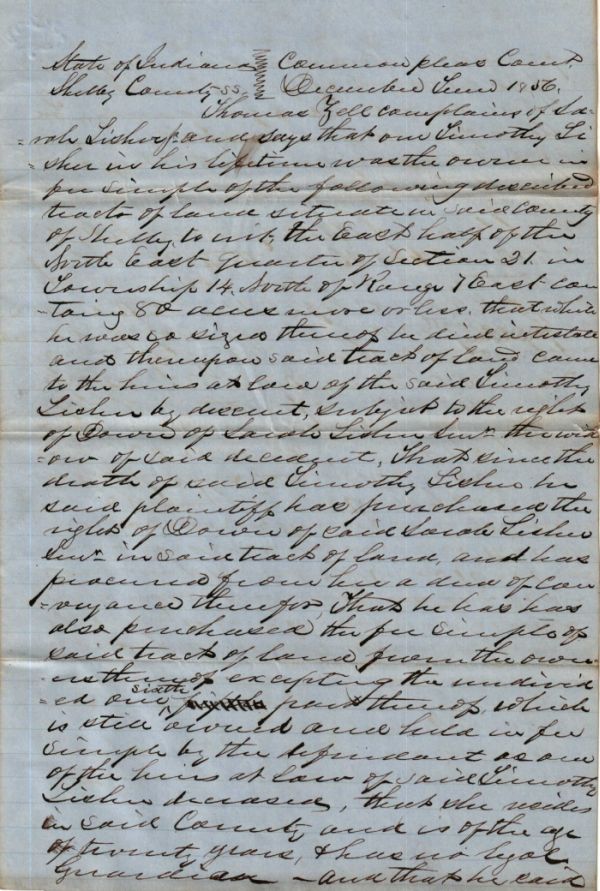 State of Indiana Common pleas Court
Shelby County ss December Term 1856.
Thomas Zell complains of Sa-
-rah Lisher and says that one Timothy Li
-sher in his lifetime was the owner in
fee simple of the following described
tracts of land situate in said County
of Shelby to wit, the East half of the
North East quarter of Section 21 in
Township 14 North of Range 7 East con
taing 80 acres more or less. that while
he was so sized thereof he died intestate
and thereupon said tract of land came
to the heirs at law of the said Timothy
Lisher by descent, subject to the right
of Dower of Sarah Lisher Snr. the wid
-ow of said decedent, That since the
death of said Timothy Lisher he
said plaintiff has purchased the
right of Dower of said Sarah Lisher
Snr. in said tract of land, and has
procured from her a deed of con
-veyance therefor, That he has has
also purchased the fee simple of
said tract of land from the own-
-ers thereof excepting the undivid
-ed one sixth part thereof which
is still owned and held in fee
simple by the defendant as one
of the heirs at law of said Timothy
Lisher deceased, that she resides
in said County and is of the age
of twenty years, & has no legal
Guardian - and that he said